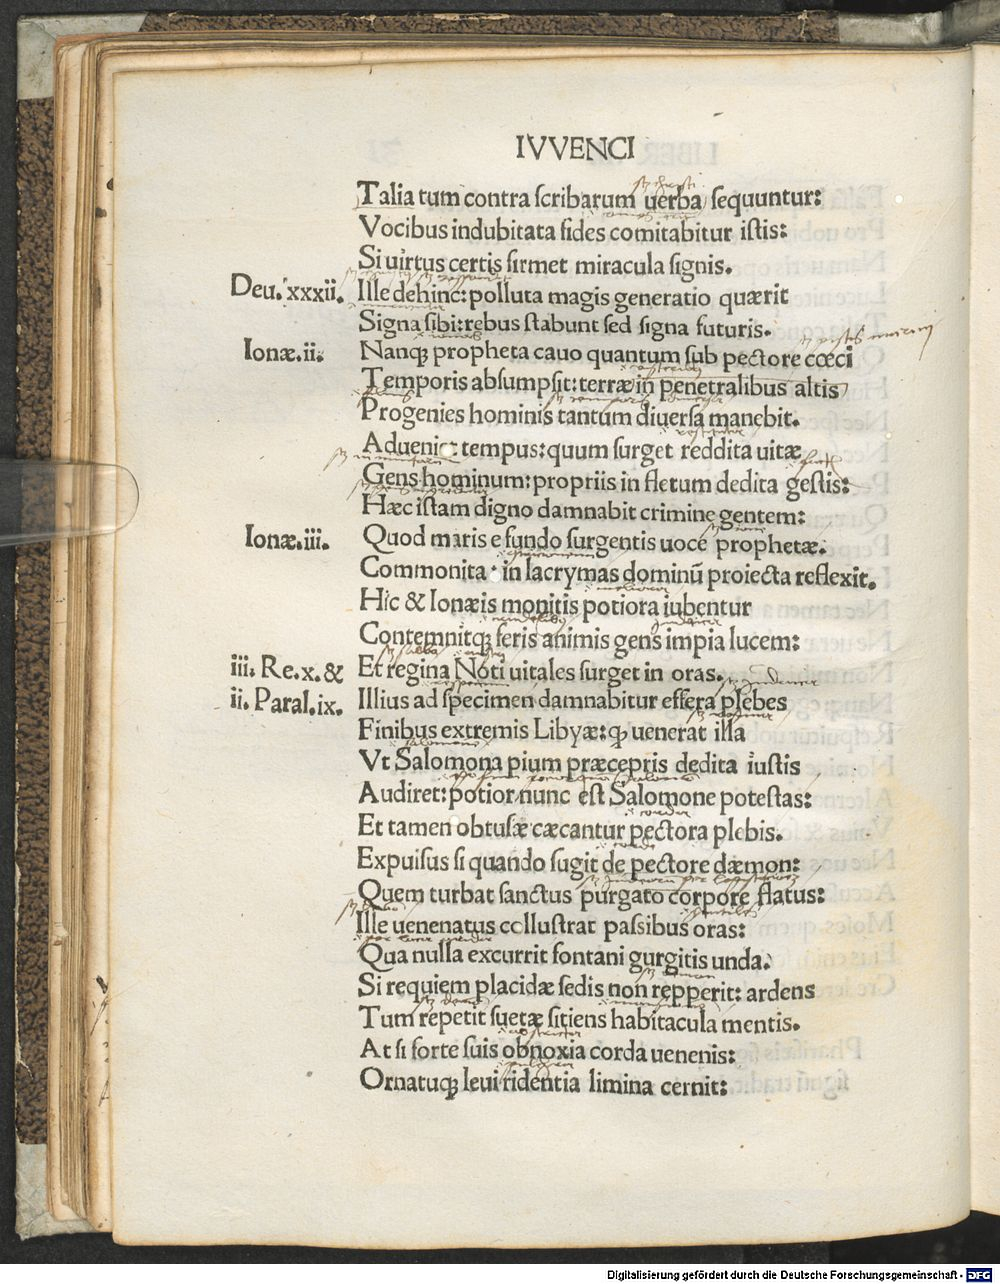 IVVENCI
Talia tum contra scribarum uerba sequuntur:
Vocibus indubitata fides comitabitur istis:
Si uirtus certis firmet miracula signis.
Deu. xxxii. Ille dehinc: polluta magis generatio quærit
Signa sibi: rebus stabunt sed signa futuris.
Ionæ. ii. Nanq; propheta cauo quantum sub pectore cœci
Temporis absumpsit: terræ in penetralibus altis
Progenies hominis tantum diuersa manebit.
Adueniet tempus: quum surget reddita uitæ
Gens hominum: propriis in fletum dedita gestis:
Hæc istam digno damnabit crimine gentem:
Ionæ. iii. Quod maris e fundo surgentis uoce prophetæ.
Commonita in lacrymas dominū proiecta reflexit.
Hic & Ionæis monitis potiora iubentur
Contemnitq; feris animis gens impia lucem:
iii. Re. x. & Et regina Noti uitales surget in oras.
ii. Paral. ix. Illius ad specimen damnabitur effera plebes
Finibus extremis Libyæ: ꝙ uenerat illa
Vt Salomona pium præceptis dedita iustis
Audiret: potior nunc est Salomone potestas:
Et tamen obtusæ cæcantur pectora plebis.
Expulsus si quando fugit de pectore dæmon:
Quem turbat sanctus purgato corpore flatus:
Ille uenenatus collustrat passibus oras:
Qua nulla excurrit fontani gurgitis unda.
Si requiem placidæ sedis non repperit: ardens
Tum repetit suetæ sitiens habitacula mentis.
At si forte suis obnoxia corda uenenis:
Ornatuq; leui ridentia limina cernit:
Digitalisierung gefördert durch die Deutsche Forschungsgemeinschaft - DFG